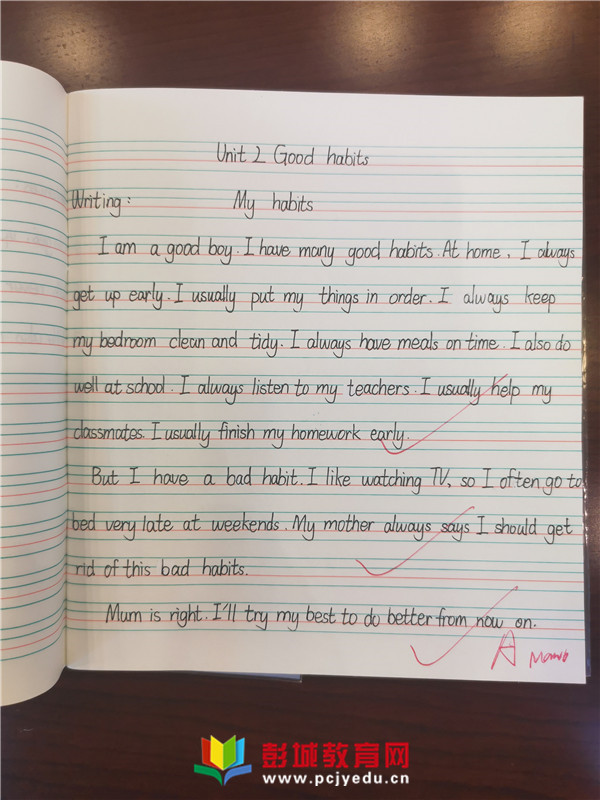 Unit 2 Good habits
Writing: My habits
I am a good boy. I have many good habits. At home, I always
get up early. I usually put my things in order. I always keep
my bedroom clean and tidy. I always have meals on time. I also do
well at school. I always listen to my teachers. I usually help my
classmates. I usually finish my homework early.
But I have a bad habit. I like watching TV, so I often go to
bed very late at weekends. My mother always says I should get
rid of this bad habits.
Mum is right. I'll try my best to do better from now on.
A
彭城教育网
www.pcjyedu.cn